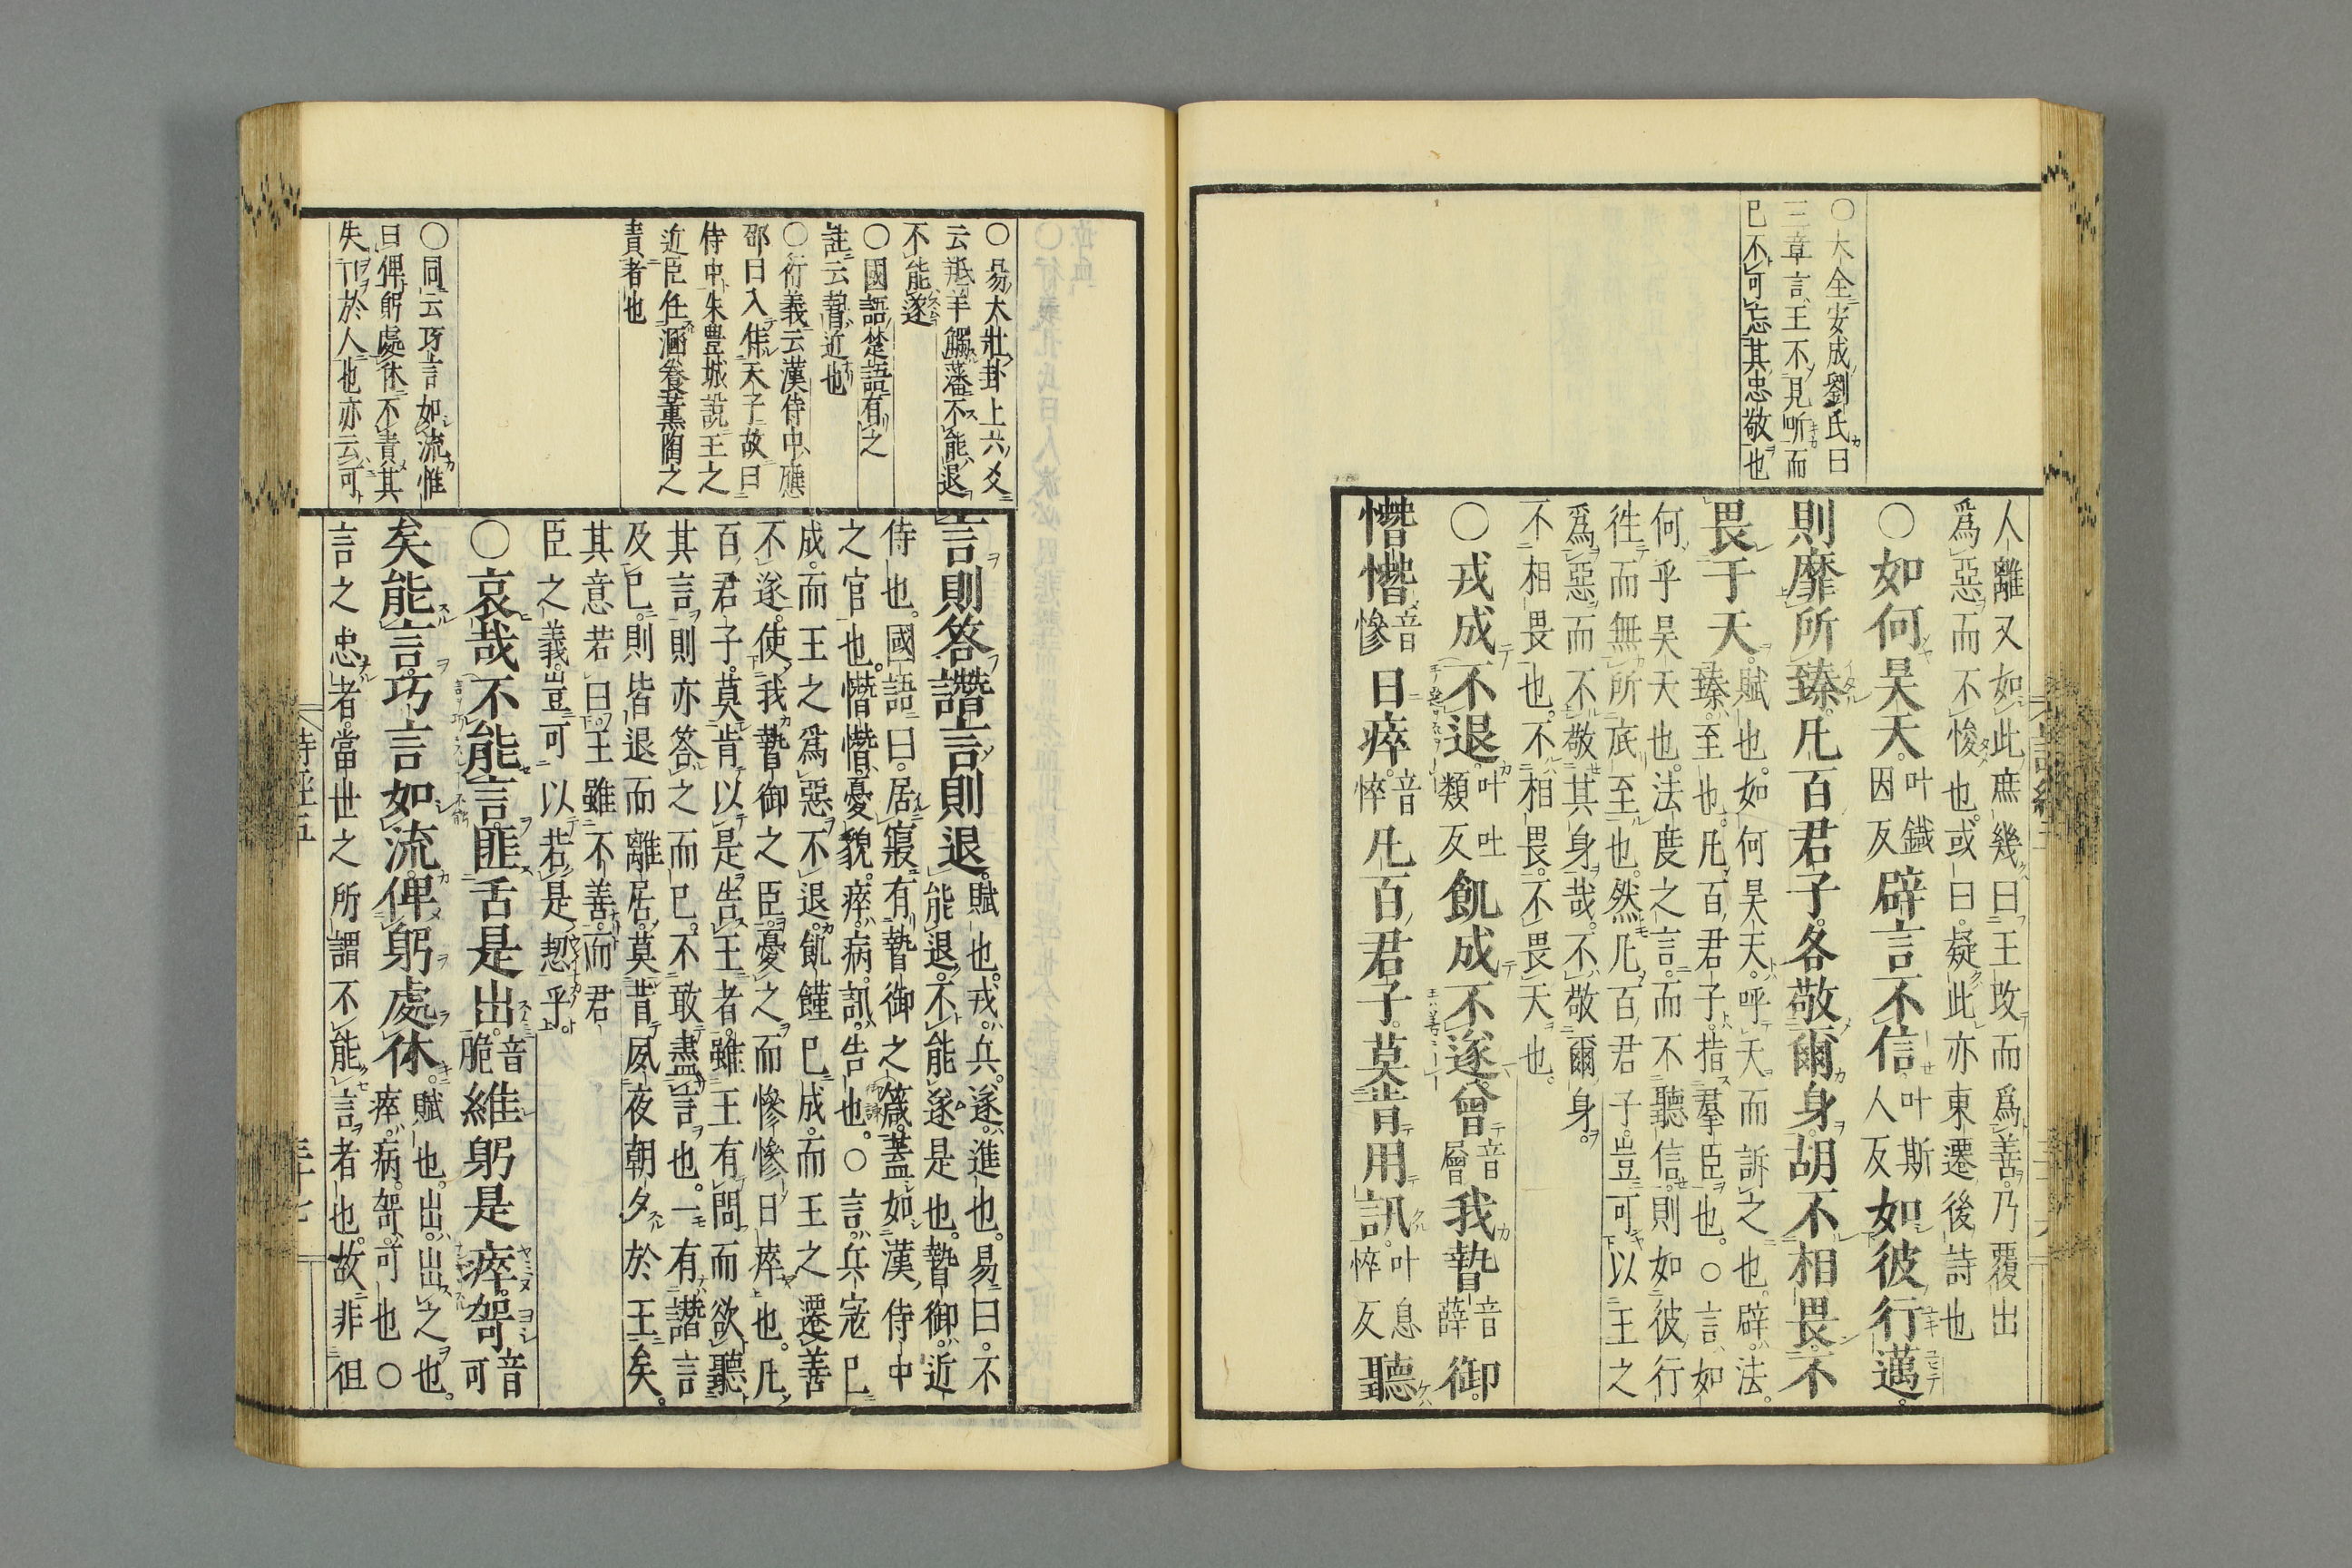 〇大全安成劉氏曰
三章言王不見听而
已不可忘其忠敬也
人離又如此庶幾曰王改而為善乃覆出
為惡而不悛也或曰疑此亦東遷後詩也
〇如何昊天叶鐵因反辟言不信叶斯人反如彼行邁
則靡所臻凡百君子各敬爾身胡不相畏不
畏于天賦也如何昊天呼天而訴之也辟法
臻至也凡百君子指羣臣也〇言如
何乎昊天也法度之言而不聽信則如彼行
徃而無所底至也然凡百君子豈可以王之
為惡而不敬其身哉不敬爾身
不相畏也不相畏不畏天也
〇戎成不退叶吐類反飢成不遂曾音層我暬音薛御
憯憯音慘日瘁音悴凡百君子莫肯用訊叶息悴反聽
〇易大壯卦上六爻
云羝羊觸藩不能退
不能遂
〇國語楚語有之
註云暬近也
〇衍義云漢侍中應
邵曰入侍天子故曰
侍中朱豊城說王之
近臣任涵養薫陶之
責者也
〇同云巧言如流惟
曰俾躬處休不責其
失丁於人也亦云可
言則答譖言則退賦也戎兵遂進也易曰不
能退不能遂是也暬御近
侍也國語曰居寢有暬御之箴蓋如漢侍中
之官也憯憯憂貌瘁病訊告也〇言兵寇已
成而王之為惡不退飢饉已成而王之遷善
不遂使我暬御之臣憂之而慘慘日瘁也凡
百君子莫肯以是告王者雖王有問而欲聽
其言則亦答之而已不敢盡言也一有譖言
及已則皆退而離居莫肯夙夜朝夕於王矣
其意若曰王雖不善而君
臣之義豈可以若是恝乎
〇哀哉不能言匪舌是出音脆維躬是瘁哿音可
矣能言巧言如流俾躬處休賦也出出之也
瘁病哿可也〇
言之忠者當世之所謂不能言者也故非但